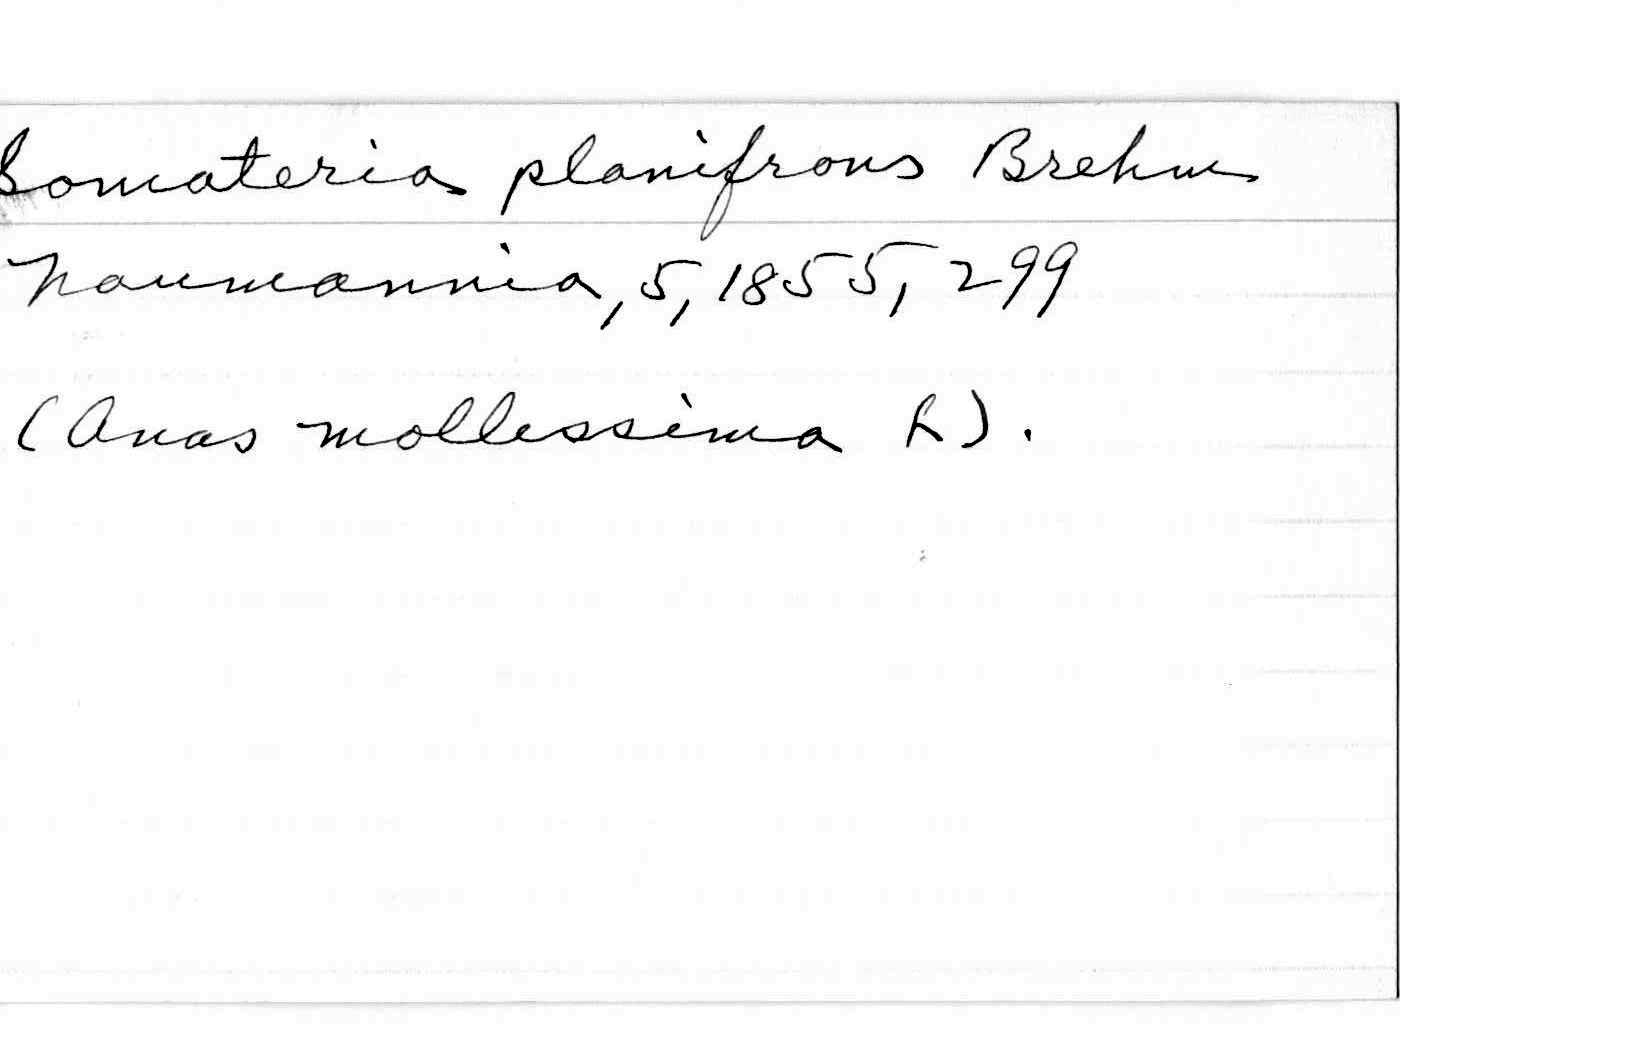 Somateria planifrons Brehm
Naumannia, 5, 1855, 299
(Anas mollessima L).